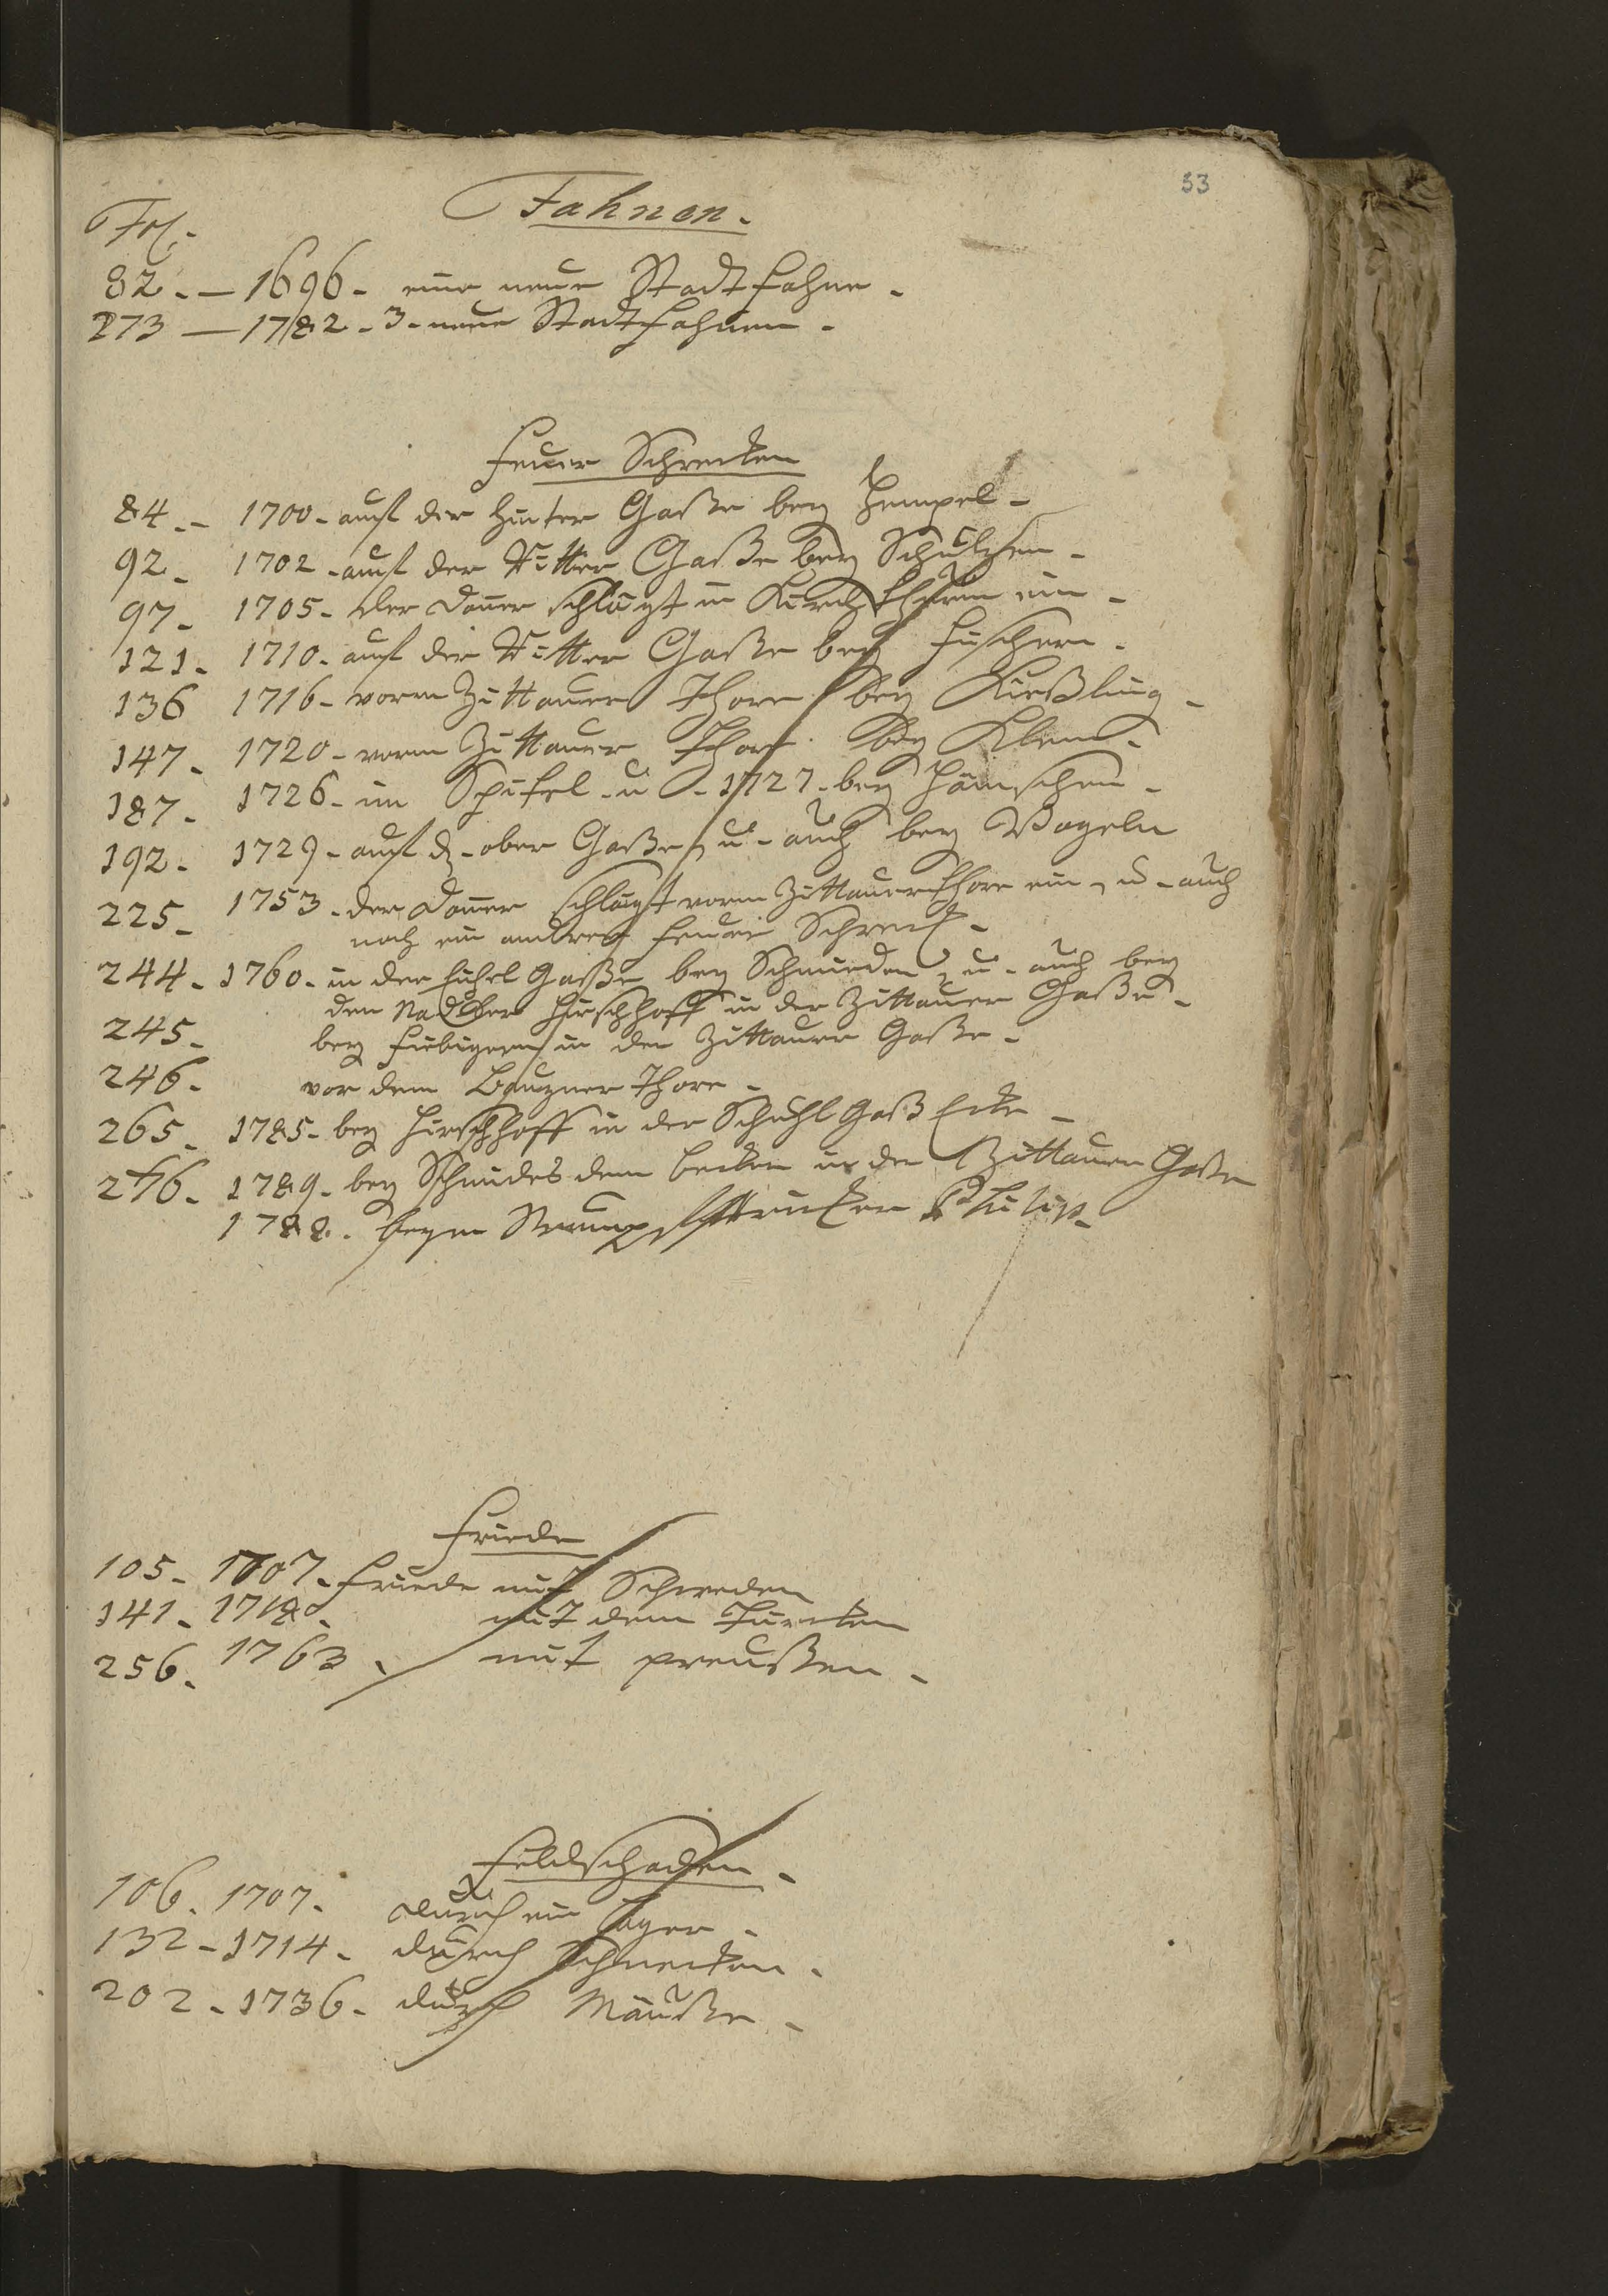 53
Fahnen.
Fol.
82. — 1696. eine neue Stadt fahne.
273 — 1782. 3. neue Stadt fahnen.
Feuer Schrecken
84. — 1700. auf der Hinter Gaße bey Hempel.
92. 1702. auf der Ritter Gaße bey Schultzen.
97. 1705. der doner schlägt in Kirch thurm ein.
121. 1710. auf der Ritter Gaße bey Fischern.
136 1716. vorm Zittauer Thore bey Kießling.
147. 1720. vorm Zittauer Thore bey Klem.
187. 1726. im Spitel. u. 1727. bey Hänschen.
192. 1729. auf d. ober Gaße, u. auch bey Vogeln
225. 1753. der doner schlägt vorm Zittauer thore ein, u. auch
noch ein andres feuer Schreck.
244. 1760. in der Gaße bey Schmieden, u. auch bey
den Nadler Hirschhoff in der Zittauer Gaße.
245. bey Fiebigern in der Zittauer Gaße.
246. vor dem Bauzner Thore.
265. 1785. bey Hirschhoff in der Schuhl Gaß Ecke.
276. 1789. bey Schmides dem becken in der Zittauer Gaße
1788. beym Strumpfstricker
Friede
105. 1707. Friede mit Schweden
141. 1718. mit dem Türcken
256. 1763. mit preußen.
Feldschaden.
106. 1707. durch ein Lager.
132. 1714. durch Schnecken.
202. 1736. durch Mäuße.